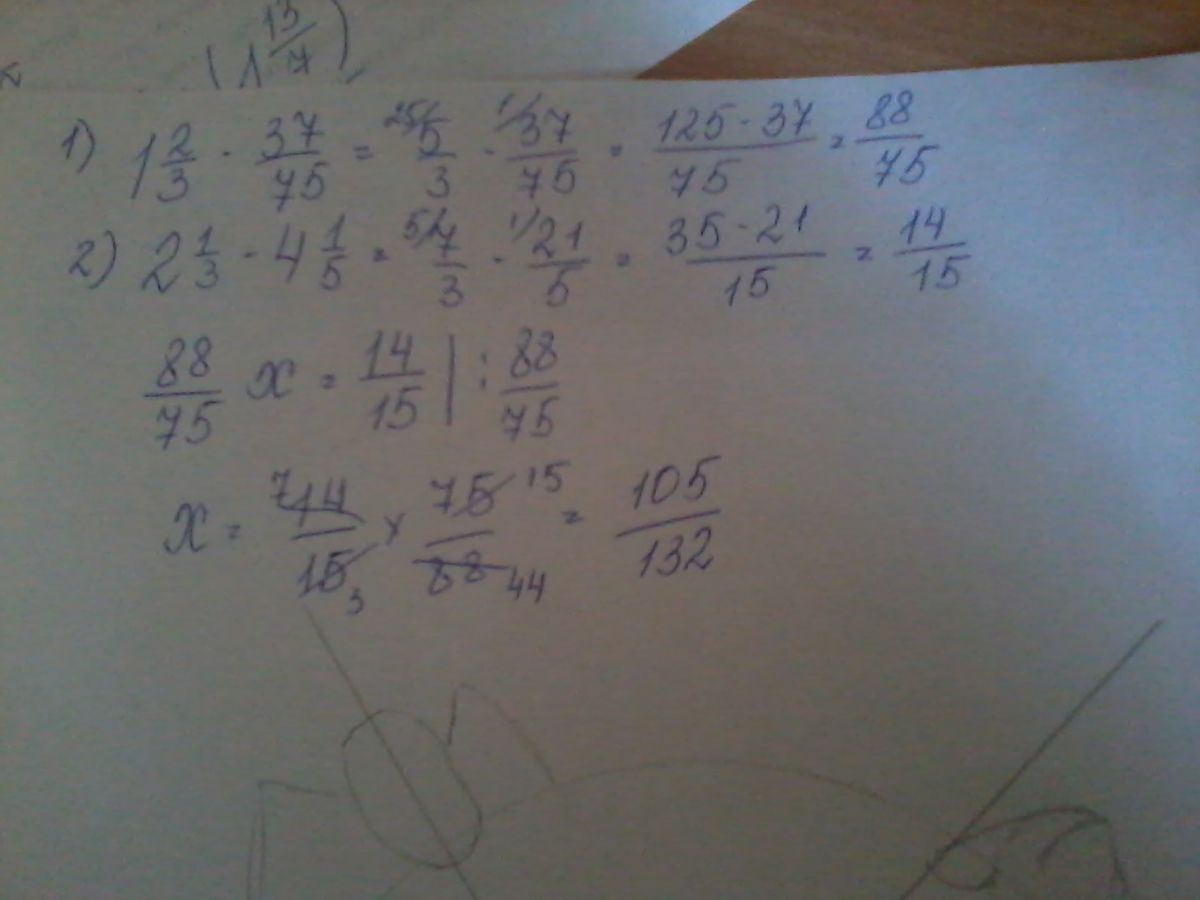 (1 13/7)
1) 1 2/3 - 37/75 = 25/ 5/3 - 1/ 37/75 = (125 - 37)/75 = 88/75
2) 2 1/3 - 4 1/5 = 5/ 7/3 - 1/ 21/5 = (35 - 21)/15 = 14/15
88/75 x = 14/15 | : 88/75
x = 7 14/15 3 × 75 15/88 44 = 105/132